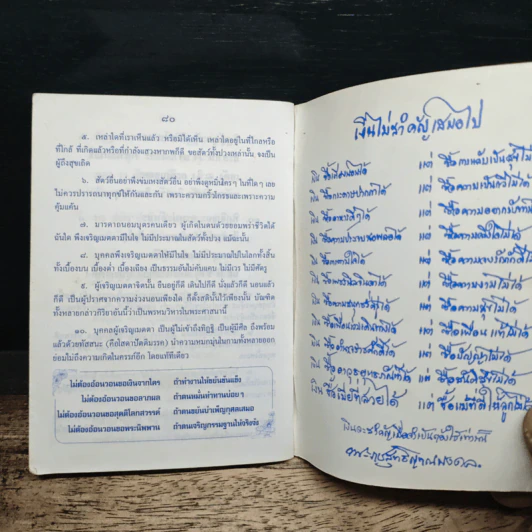 ๘๐
๕. เหล่าใดที่เราเห็นแล้ว หรือมิได้เห็น เหล่าใดอยู่ในที่ไกลหรือ
ที่ใกล้ ที่เกิดแล้วหรือที่กำลังแสวงหาภพก็ดี ขอสัตว์ทั้งปวงเหล่านั้น จงเป็น
ผู้ถึงสุขเถิด
๖. สัตว์อื่นอย่าพึงข่มเหงสัตว์อื่น อย่าพึงดูหมิ่นใครๆ ในที่ใดๆ เลย
ไม่ควรปรารถนาทุกข์ให้กันและกัน เพราะความกริ้วโกรธและเพราะความ
คุมแค้น
๗. มารดาถนอมบุตรคนเดียว ผู้เกิดในตนด้วยยอมพร่าชีวิตได้
ฉันใด พึงเจริญเมตตามีในใจ ไม่มีประมาณในสัตว์ทั้งปวง แม้ฉะนั้น
๘. บุคคลพึงเจริญเมตตาให้มีในใจ ไม่มีประมาณไปในโลกทั้งสิ้น
ทั้งเบื้องบน เบื้องต่ำ เบื้องเฉียง เป็นธรรมอันไม่คับแคบ ไม่มีเวร ไม่มีศัตรู
๙. ผู้เจริญเมตตาจิตนั้น ยืนอยู่ก็ดี เดินไปก็ดี นั่งแล้วก็ดี นอนแล้ว
ก็ดี เป็นผู้ปราศจากความง่วงนอนเพียงใด ก็ตั้งสตินั้นไว้เพียงนั้น บัณฑิต
ทั้งหลายกล่าวกิริยาอันนี้ว่าเป็นพรหมวิหารในพระศาสนานี้
๑๐. บุคคลผู้เจริญเมตตา เป็นผู้ไม่เข้าถึงทิฏฐิ เป็นผู้มีศีล ถึงพร้อม
แล้วด้วยทัสสนะ (คือโสดาปัตติมรรค) นำความหมกมุ่นในกามทั้งหลายออก
ย่อมไม่ถึงความเกิดในครรภ์อีก โดยแท้ทีเดียว
ไม่ต้องอ้อนวอนขอเงินจากใคร ถ้าทำงานให้ขยันขันแข็ง
ไม่ต้องอ้อนวอนขอลาภผล ถ้าตนหมั่นทำทานบ่อยๆ
ไม่ต้องอ้อนวอนขอสุคติโลกสวรรค์ ถ้าตนขยันบำเพ็ญกุศลเสมอ
ไม่ต้องอ้อนวอนขอพระนิพพาน ถ้าตนเจริญกรรมฐานให้จริงจัง
เงินไม่สำคัญเสมอไป
เงิน ซื้อ ได้ แต่ ซื้อความหลับ ไม่ได้
เงิน ซื้อกระดาษปากกาได้ แต่ ซื้อความเป็นกวีไม่ได้
เงิน ซื้ออาหารดีๆได้ แต่ ซื้อความอยาก ไม่ได้
เงิน ซื้อความ ได้ แต่ ซื้อ ไม่ได้
เงิน ซื้อ ได้ แต่ ซื้อความจงรักภักดีไม่ได้
เงิน ซื้อ ได้ แต่ ซื้อความงามไม่ได้
เงิน ซื้อความสนุก ได้ แต่ ซื้อความสุขไม่ได้
เงิน ซื้อเพื่อน ได้ แต่ ซื้อเพื่อนแท้ไม่ได้
เงิน ซื้อ ได้ แต่ ซื้อปัญญาไม่ได้
เงิน ซื้ออาวุธ ได้ แต่ ซื้อ ไม่ได้
เงิน ซื้อเมียที่สวยได้ แต่ ซื้อแม่ที่ดีให้ลูกไม่ได้